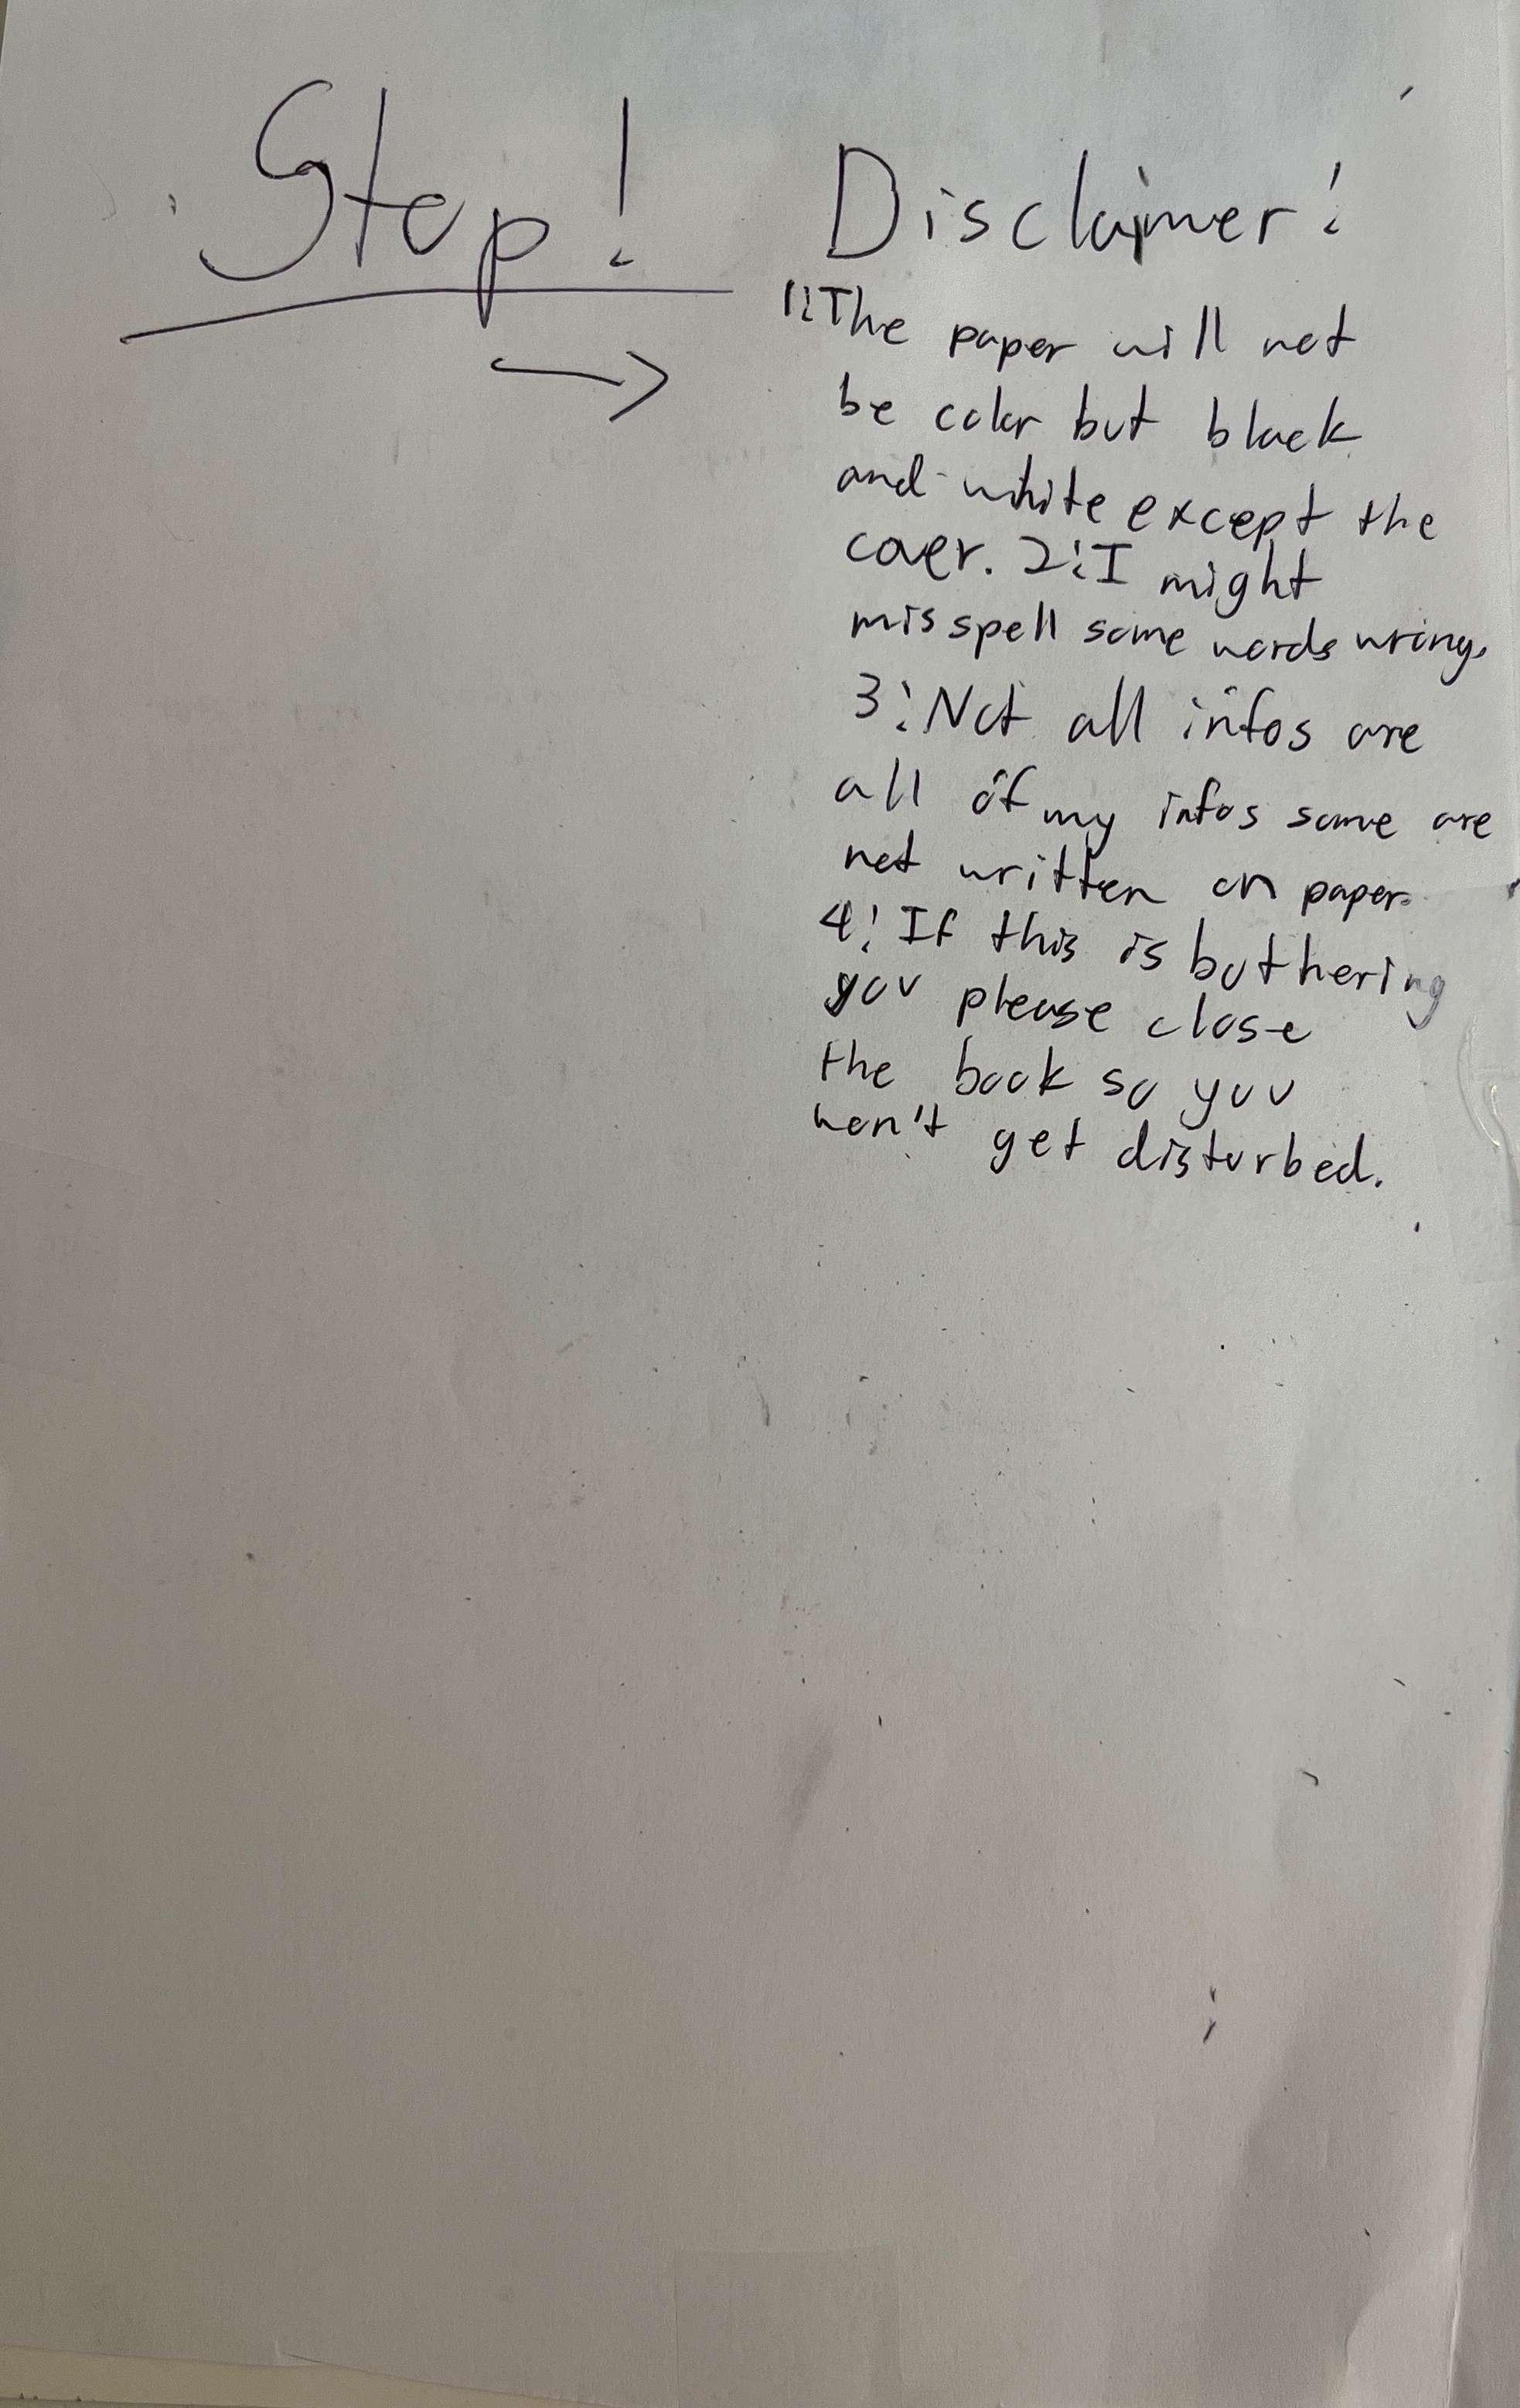 Stop!
Disclaimer!
1:The paper will not
be color but black
and white except the
cover. 2:I might
misspell some words wring.
3:Not all infos are
all of my infos some are
not written on paper.
4: If this is bothering
you please close
the book so you
won't get disturbed.